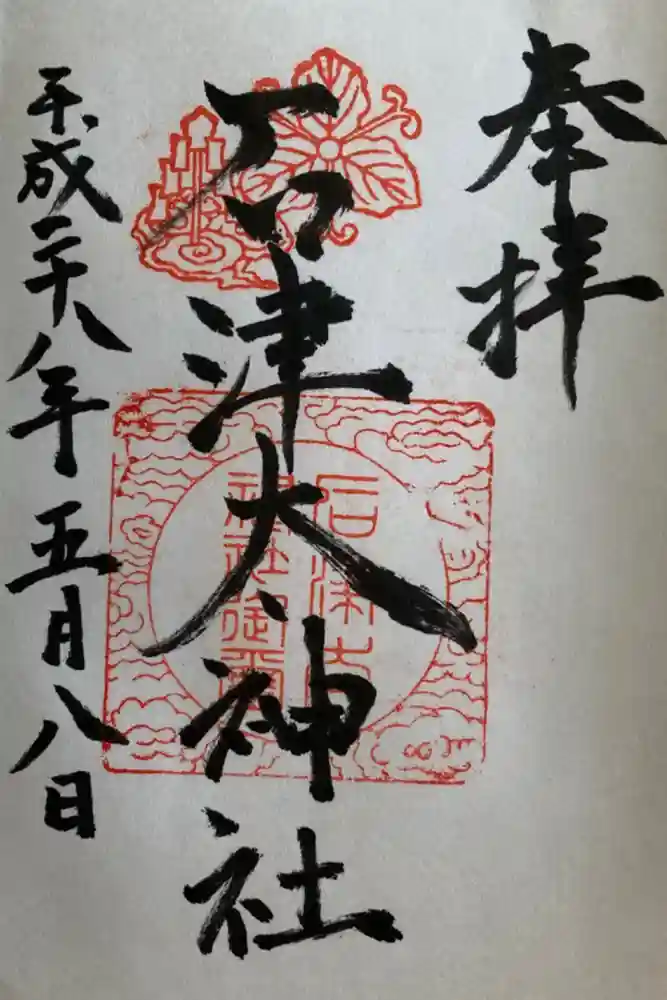 奉拝
石津太神社
石津太
神社御璽
平成二十八年五月八日